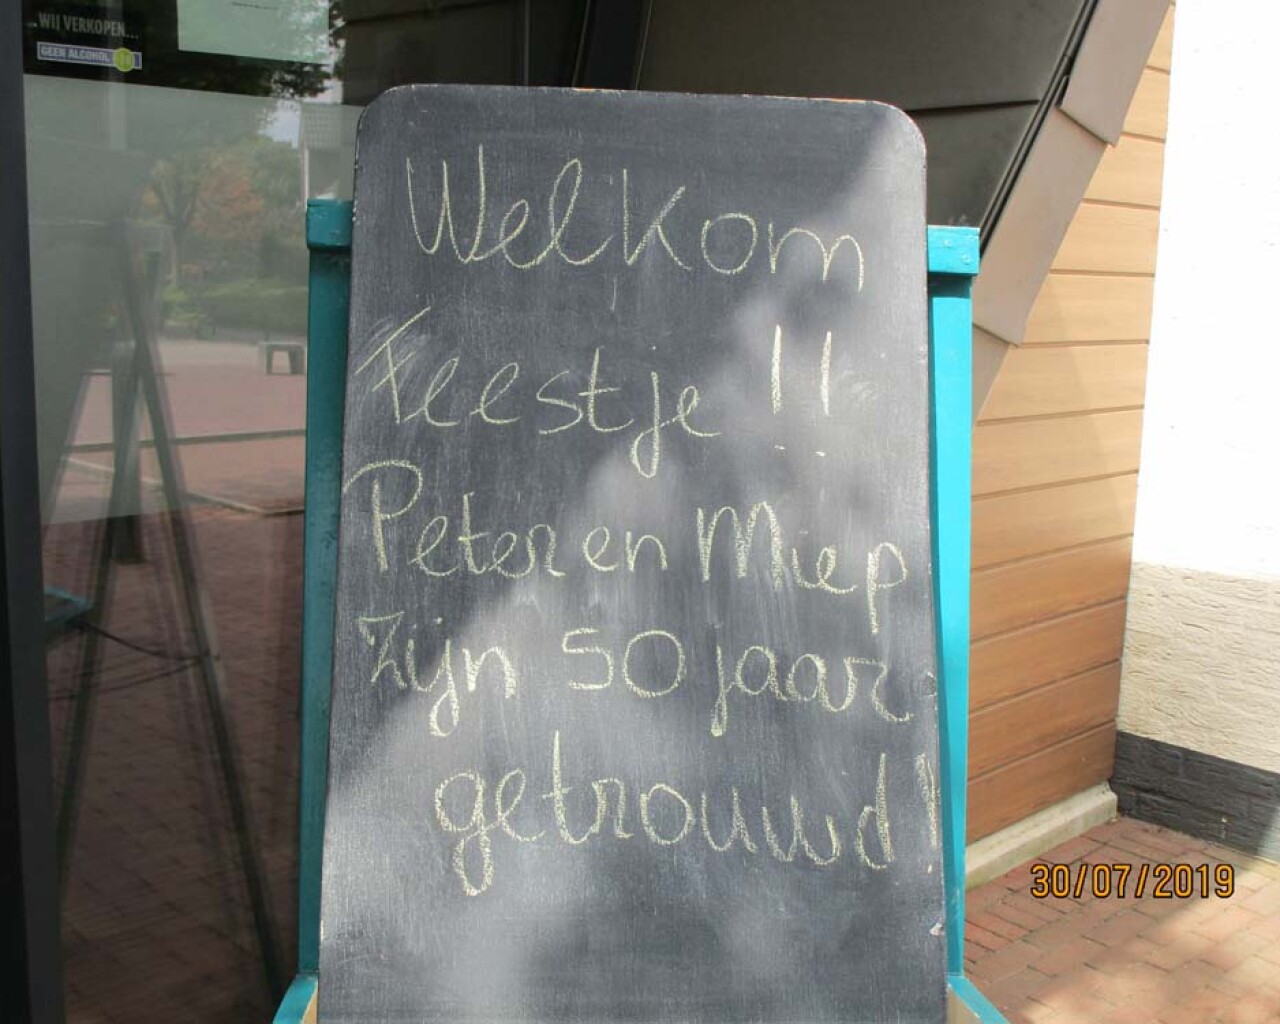 WIJ VERKOPEN...
GEEN ALCOHOL
Welkom
Feestje !!
Peter en Miep
Zijn 50 jaar
getrouwd!
30/07/2019